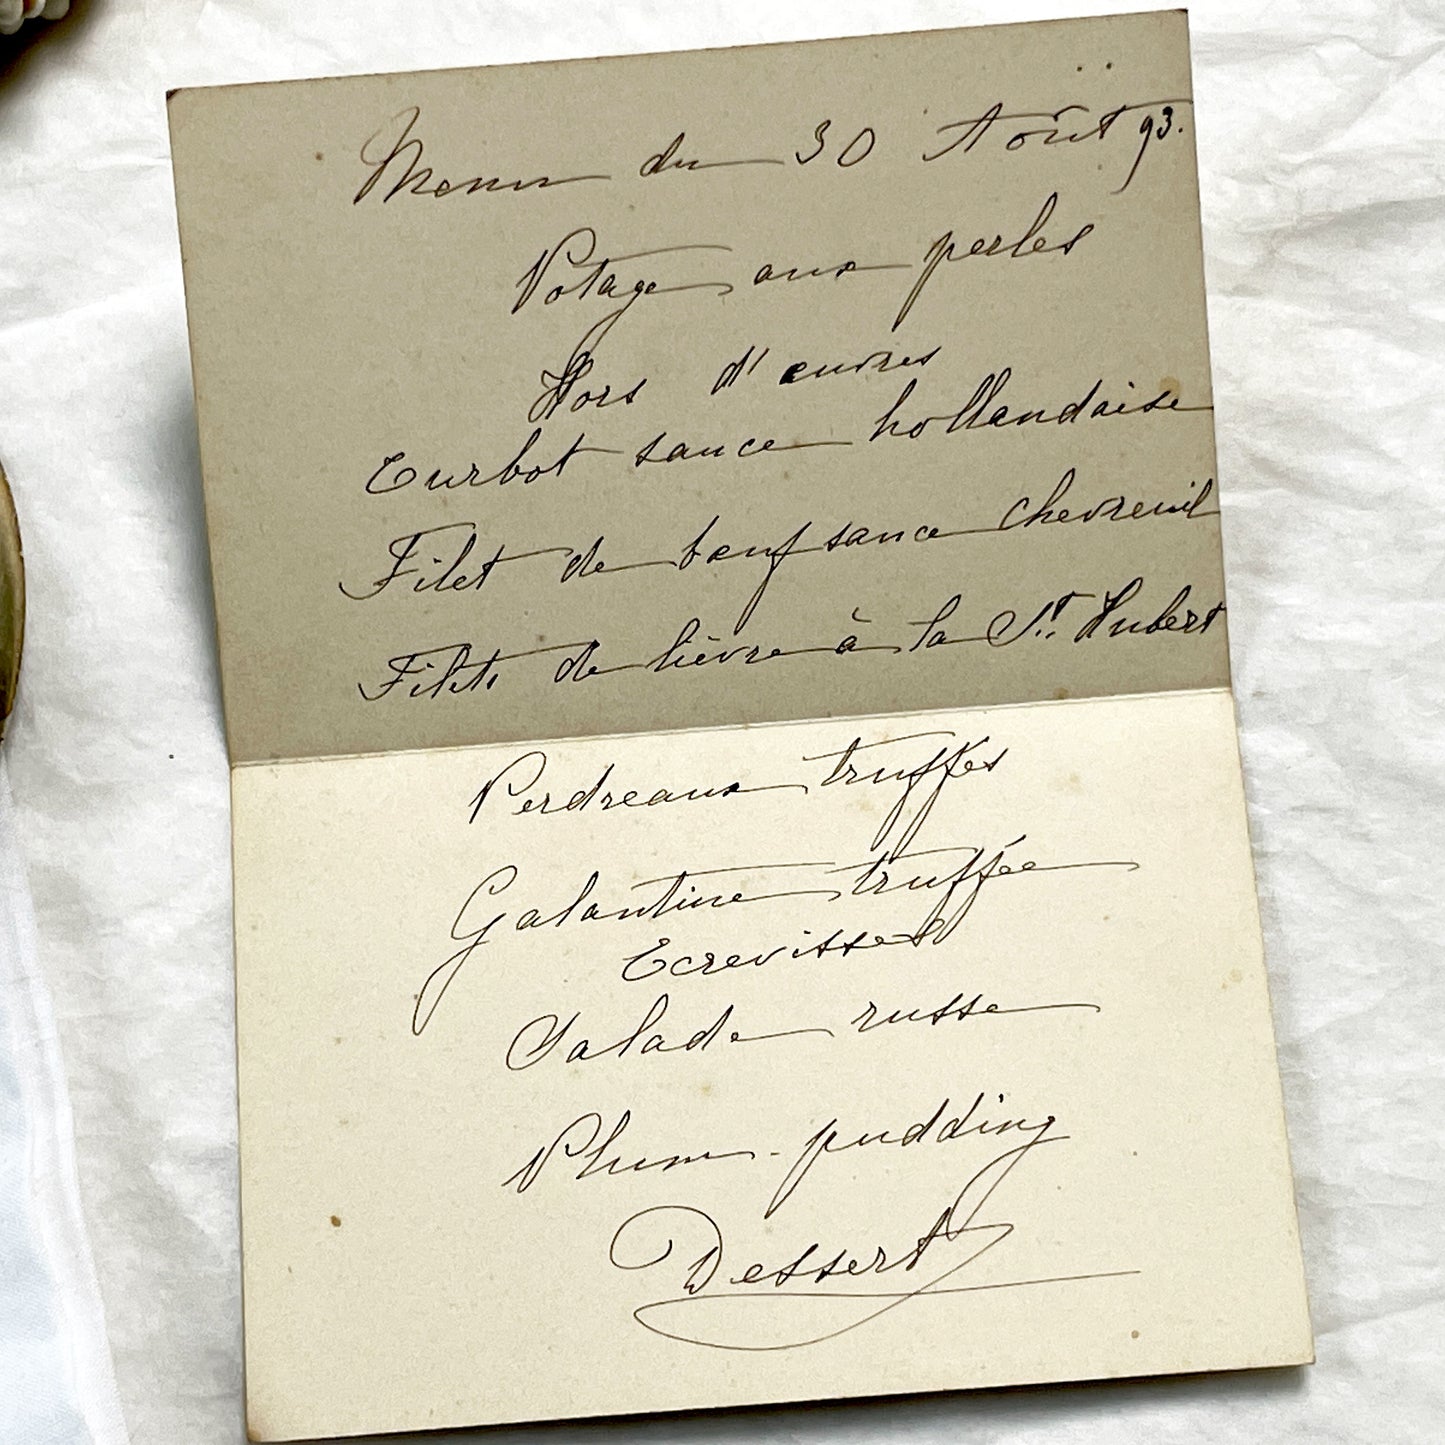 Menu du 30 Août 93.
Potage aux perles
Hors d'œuvres
Turbot sauce hollandaise
Filet de bœuf sauce chevreuil
Filets de lièvre à la St. Hubert
Perdreaux truffés
Galantine truffée
Ecrevisses
Salade russe
Plum-pudding
Dessert